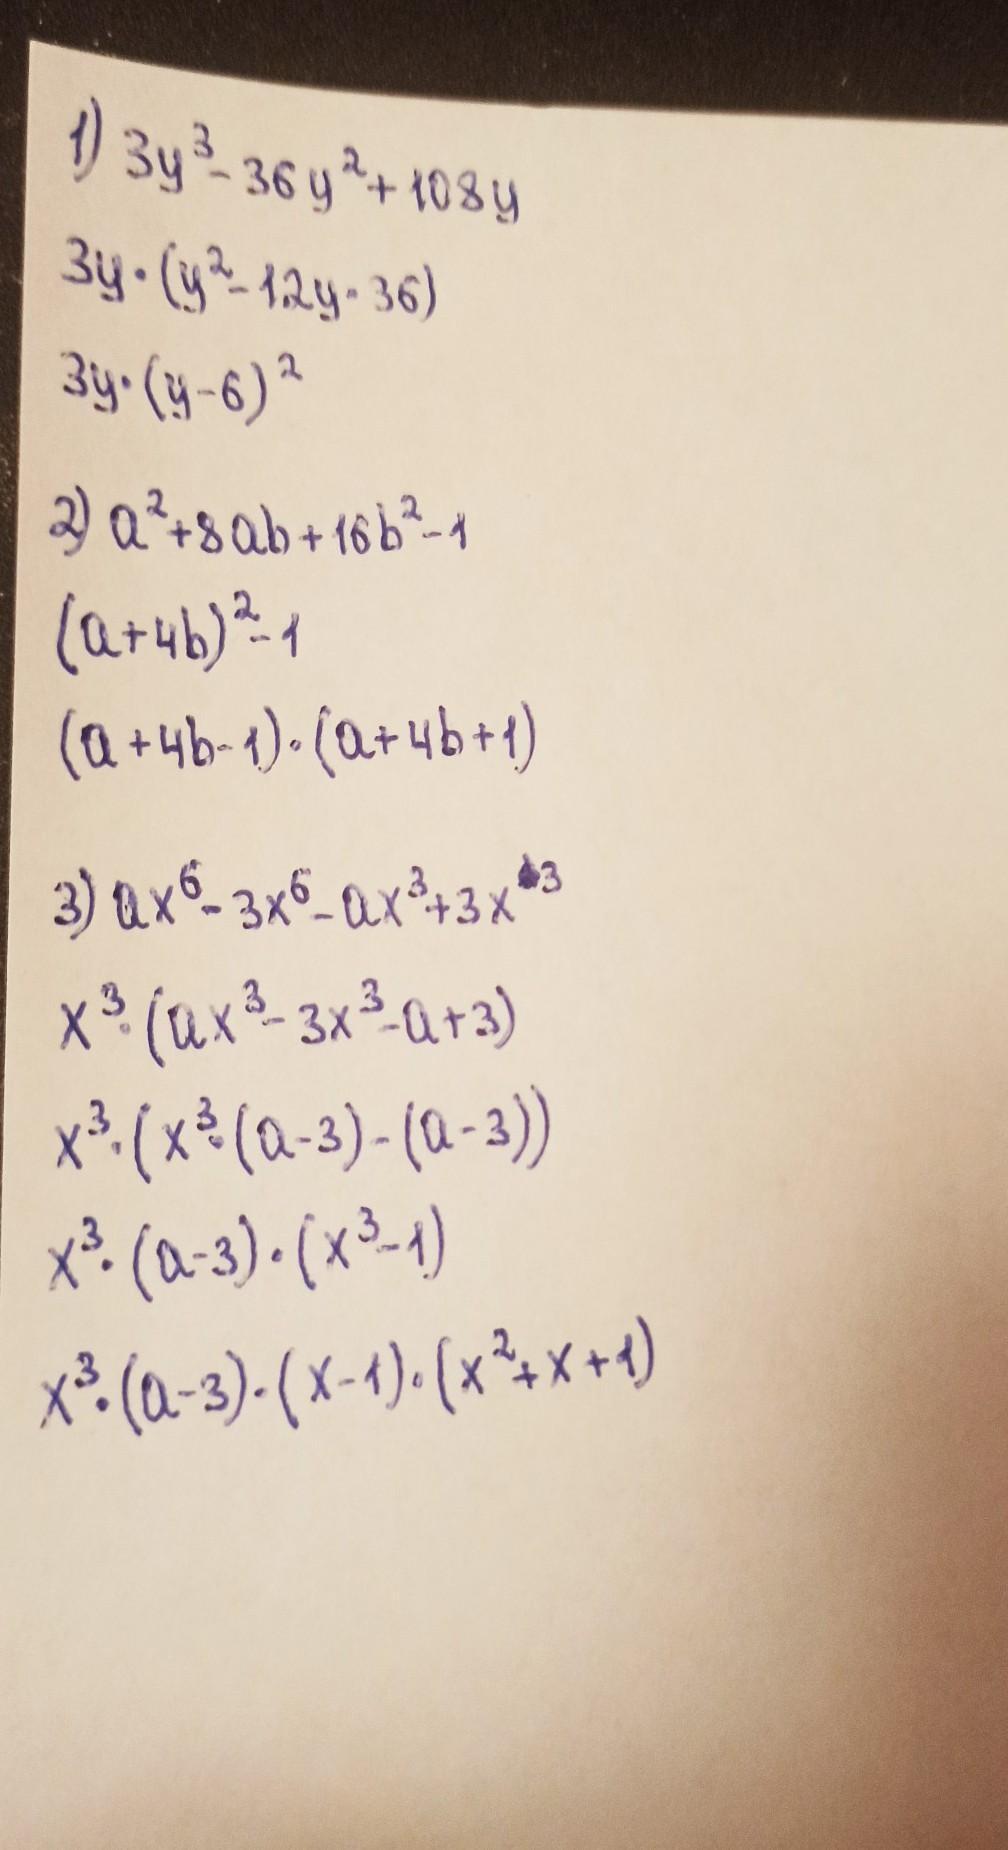 1) 3y³-36y²+108y
3y·(y²-12y·36)
3y·(y-6)²
2) a²+8ab+16b²-1
(a+4b)²-1
(a+4b-1)·(a+4b+1)
3) ax⁶-3x⁶-ax³+3x³
x³·(ax³-3x³-a+3)
x³·(x³·(a-3)-(a-3))
x³·(a-3)·(x³-1)
x³·(a-3)·(x-1)·(x²+x+1)